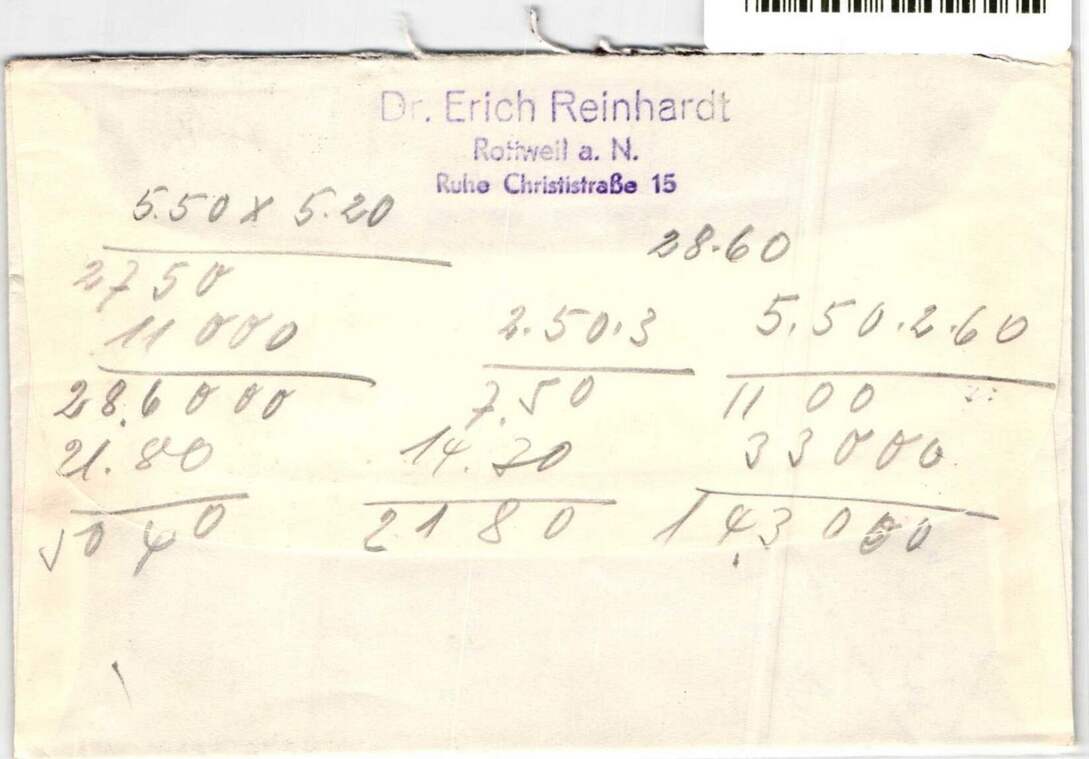 Dr. Erich Reinhardt
Rottweil a. N.
Ruhe Christistraße 15
5.50 x 5.20
2750
11000
28.6000
21.80
5040
28.60
2.50.3
7.50
14.30
2180
5.50.2.60
1100
33000
143000